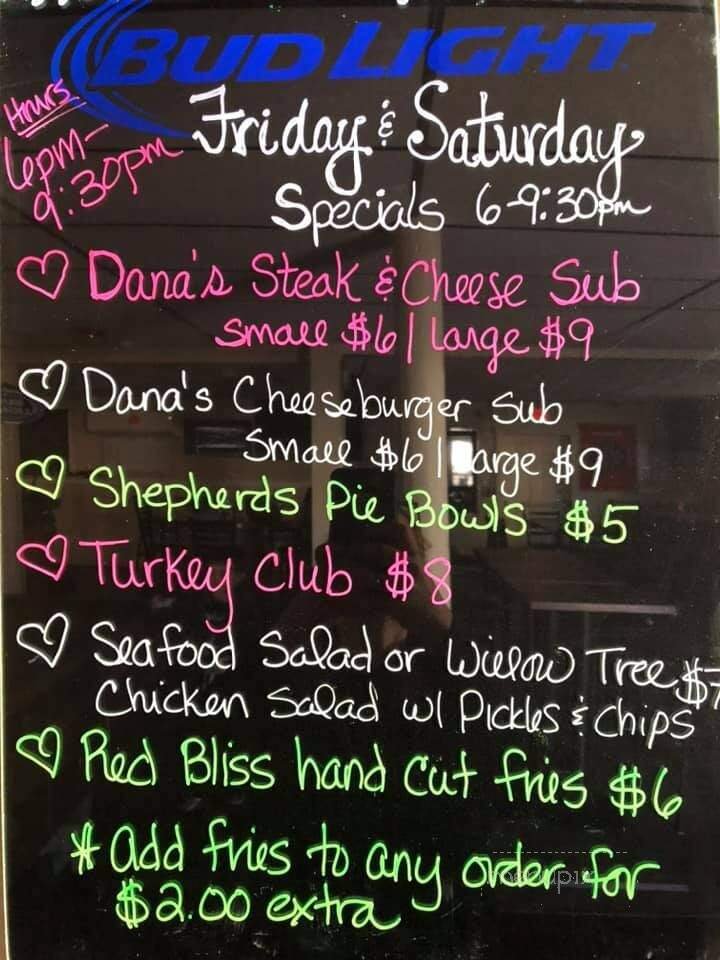 BUD LIGHT
Hours
6pm-
9:30pm
Friday & Saturday
Specials 6-9:30pm
Dana's Steak & Cheese Sub
Small $6 | Large $9
Dana's Cheeseburger Sub
Small $6 | Large $9
Shepherds Pie Bowls $5
Turkey Club $8
Seafood Salad or Willow Tree $7
Chicken Salad w/ Pickles & Chips
Red Bliss hand cut fries $6
* Add fries to any order for
$2.00 extra